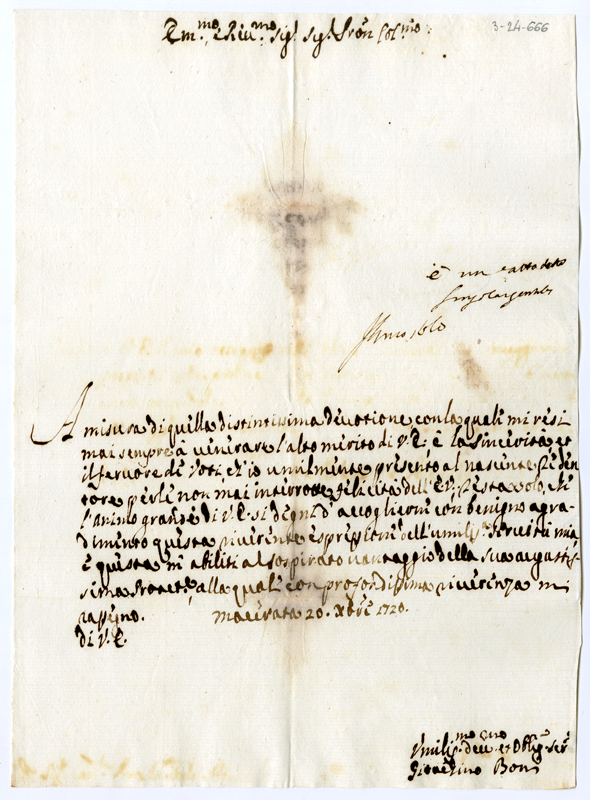 Em.mo e Reu.mo Sig.r Sig.r Pron Col.mo
3-24-666
è un
A misura di quella distintissima deuotione con la quale mi resi
mai sempre à uenerare l'alto merito di V.E. è la sincerità et
il feruore di Voti, ch'io umilmente presento al nascente Reden
tore per le non mai interrotte felicità dell'E.V. Resta solo, che
l'animo grande di V.E. si degni d'accoglierne con benigno agra-
dimento questa riuerente espressione dell'umilis.ma seruitù mia
e questa mi abiliti al sospirato uantaggio della sua augustis-
sima Protet.ne, alla quale con profondissima riuerenza mi
rassegno.
Macerata 20. Xbre 1720.
Di V.E.
Vmilis.mo deu.mo et Oblig. Ser.e
Boni